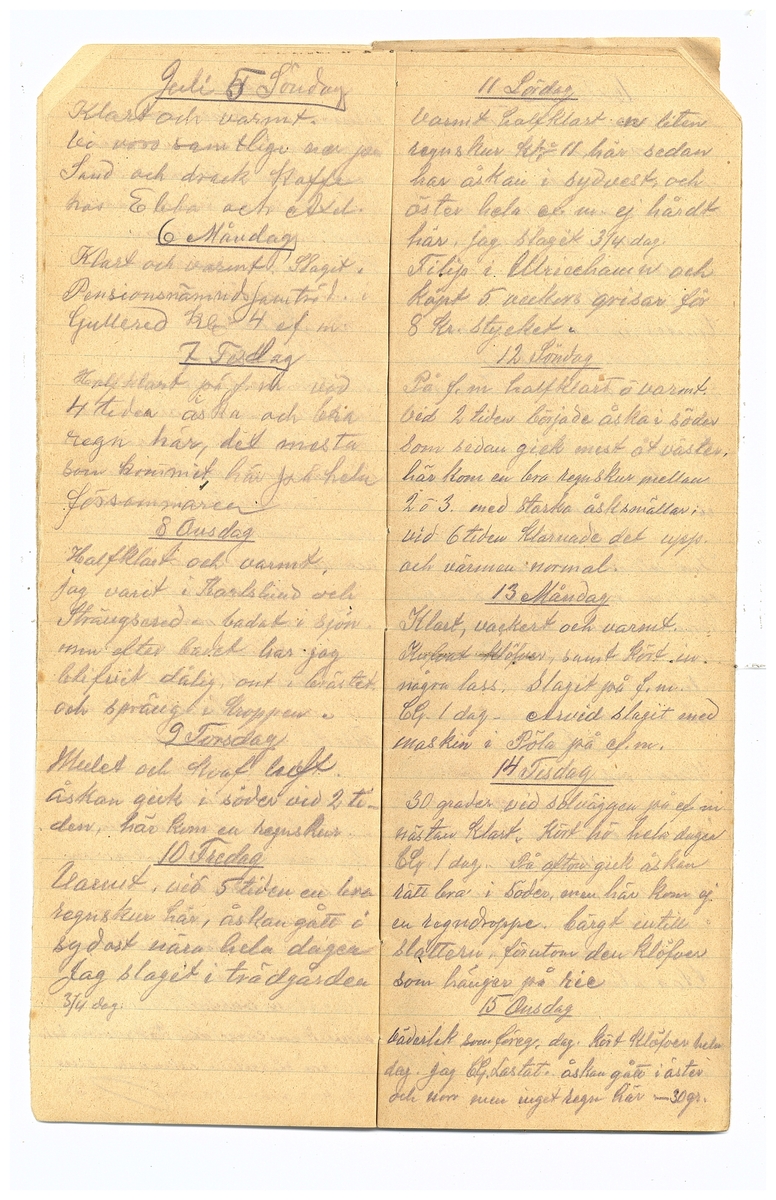 Juli 5 Söndag
Klart och varmt.
Vi voro samtlige ner på
Sand och drack kaffe
hos Ebba och Axel.
6 Måndag
Klart och varmt. Slagit.
Pensionsnämndssamträd. i
Gullered kl. 4 ef m.
7 Tisdag
Halfklart på f.m. vid
4 tiden åska och bra
regn här, det mesta
som kommit här på hela
försommaren
8 Onsdag
Halfklart och varmt,
jag varit i Karlslund och
Strängsered. badat i sjön
men efter badet har jag
blifvit dålig, ont i bröstet
och spräng i kroppen.
9 Torsdag
Mulet och kvaf luft.
åskan gick i söder vid 2 ti-
den, här kom en regnskur.
10 Fredag
Varmt. vid 5 tiden en bra
regnskur här, åskan gått i
sydost nära hela dagen
Jag slaget i trädgården
3/4 dag.
11 Lördag
Varmt halfklart en liten
regnskur kl. 11 här sedan
har åskan i sydvest, och
öster hela ef. m. ej hårdt
här. jag slaget 3/4 dag
Filip i Ulricehamn och
köpt 5 veckors grisar för
8 Kr. stycket.
12 Söndag
På f.m halfklart o varmt.
vid 2 tiden började åska i söder
som sedan gick mest åt väster,
här kom en bra regnskur mellan
2 o 3. med starka åsksmällar.
vid 6 tiden klarnade det upp.
och värmen normal.
13 Måndag
Klart, vackert och varmt.
klöfver, samt kört in
några lass. Slaget på f.m.
CG. 1 dag. Arvid slagit med
maskin i Röla på ef.m.
14 Tisdag
30 grader vid solväggen på ef m
nästan klart. Kört hö hela dagen
CG 1 dag. På afton gick åskan
rätt bra i söder, men här kom ej
en regndroppe. bärgt intill
slåttern, förutom den klöfver
som hänger på
15 Onsdag
Väderlek som föreg. dag. kört klöfver hela
dag. jag CG. Lastat. åskan gått i öster
och norr men inget regn här — 30 gr.